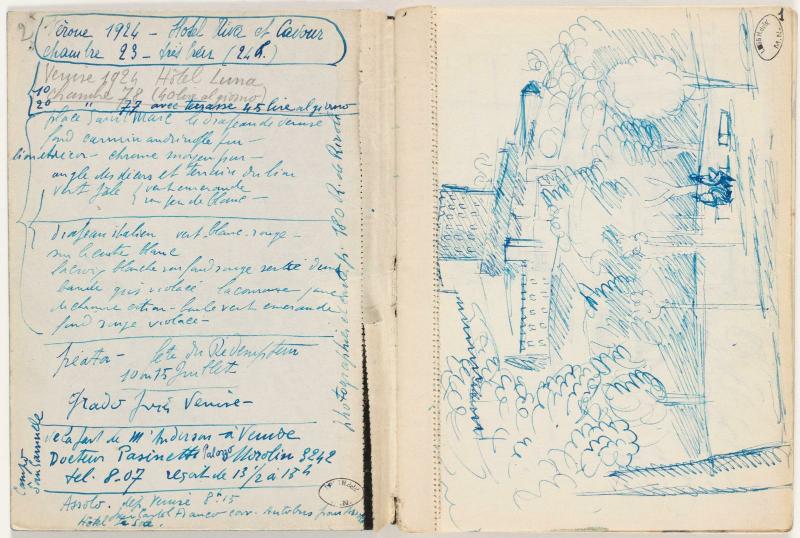 2
Vérone 1924 - Hotel Riva et Cavour
chambre 23 - très bien (24 h.)
Venise 1924 Hôtel Luna
1º chambre 78 (40 lire al giorno)
2º " 77 avec terrasse 45 lire al giorno
place Saint Marc le drapeau de Venise
fond carmin andrinople pur -
lion et - chrome moyen pur -
angle des et terrain du lion
vert pale vert emeraude
un peu de blanc -
Drapeau italien vert-blanc-rouge -
sur le centre blanc
la croix blanche sur fond rouge
bande gris violacé la couronne jaune
de chrome citron - boule vert emeraude
fond rouge violacé -
fête du Redempteur
10 ou 15 Juillet
Grado près Venise -
de la part de Mr Anderson - à Venise
Docteur Pasinetti Palazzo 3242
tel. 8-07 reçoit de 13½ à 15h
Campo
San Samuele
Asolo. dep Venise 8h15
Castel Franco corr. Autobus pour
Hôtel
180 R. de Rivoli